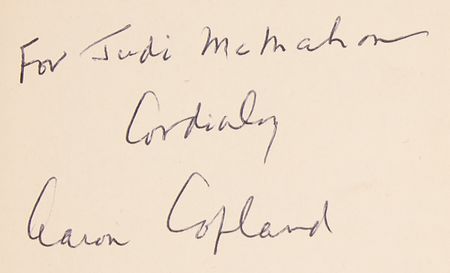 For Judi McMahon
Cordially
Aaron Copland